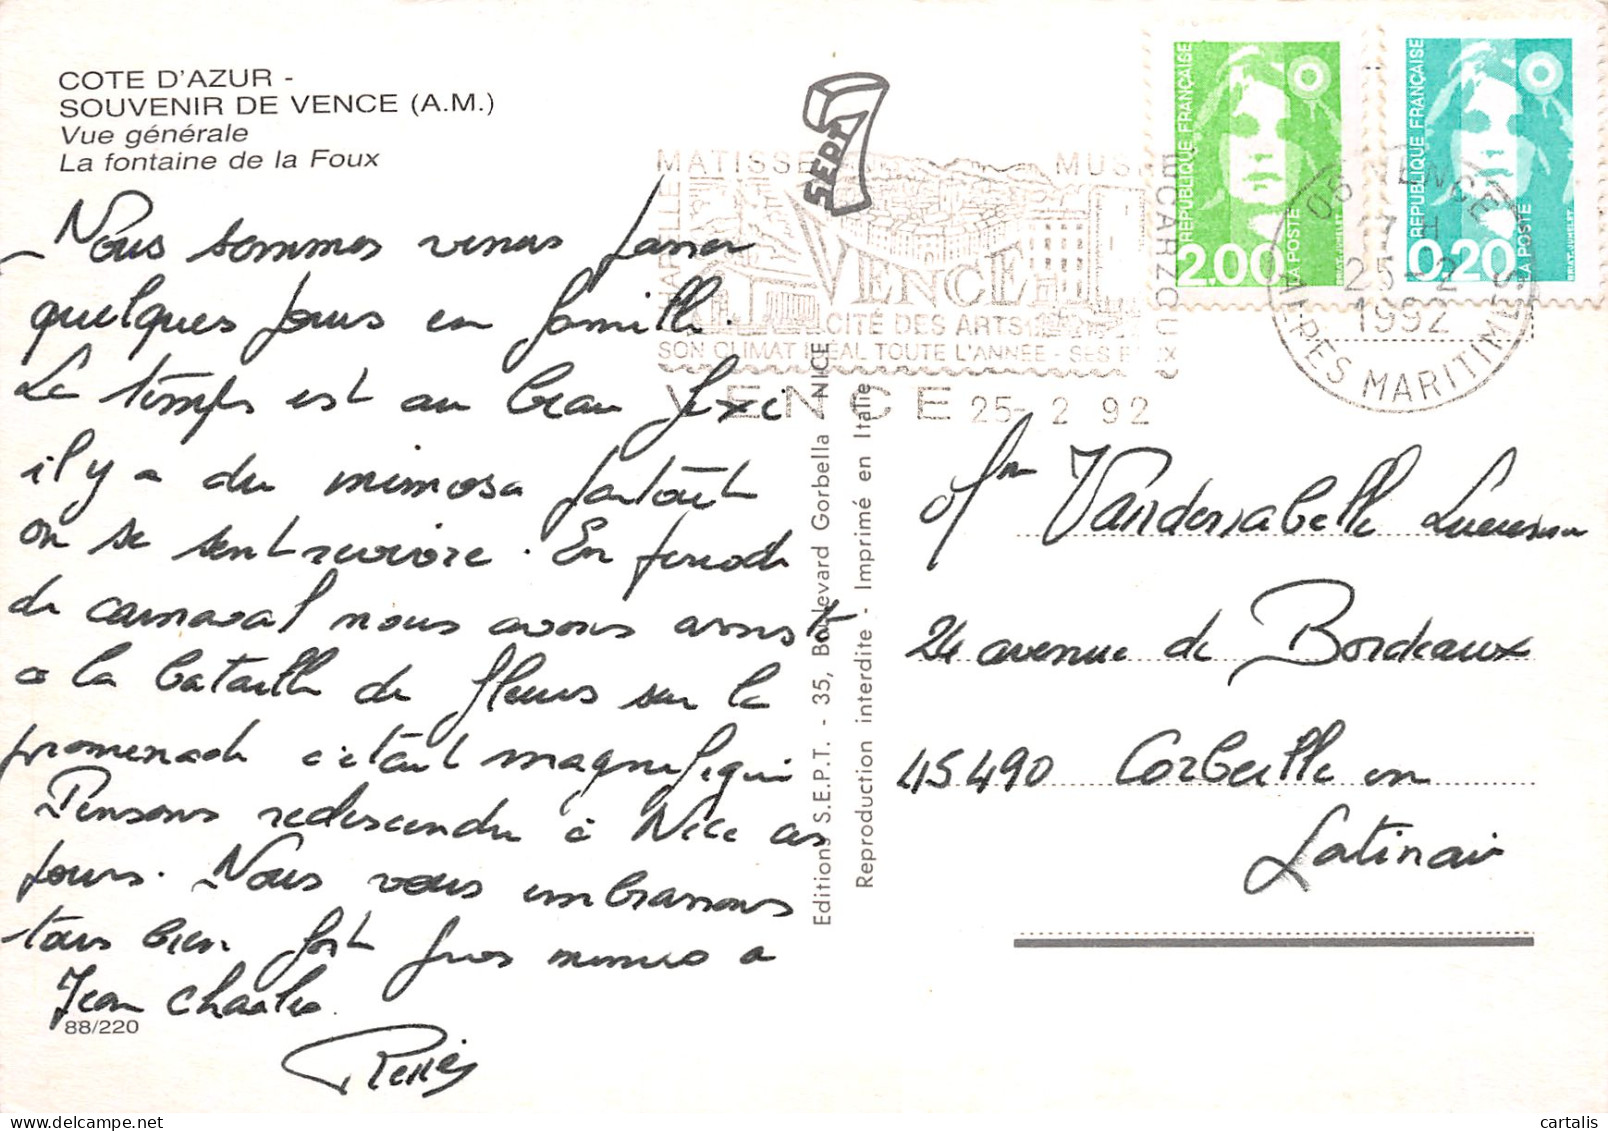 COTE D'AZUR -
SOUVENIR DE VENCE (A.M.)
Vue générale
La fontaine de la Foux
Nous sommes venus passer
quelques jours en famille.
Le temps est au beau fixe
il y a du mimosa partout
on se sent revivre. En periode
de carnaval nous avons assisté
a la bataille de fleurs sur la
promenade c'était magnifique
Pensons redescendre à Nice ces
jours. Nous vous embrassons
tous bien fort gros mimis a
Jean Charles.
88/220
SEPT
MATISSE
MUS
CHAPELLE
ESCARZOU
VENCE
CITÉ DES ARTS
SON CLIMAT IDÉAL TOUTE L'ANNÉE - SES
VENCE 25-2 92
RÉPUBLIQUE FRANÇAISE
2.00
LA POSTE
BRIAT-JUMELET
RÉPUBLIQUE FRANÇAISE
0,20
LA POSTE
BRIAT-JUMELET
06 VENCE
17 H
25-2
1992
ALPES MARITIMES
Editions S.E.P.T. - 35, Boulevard Gorbella - NICE
Reproduction interdite - Imprimé en Italie
24 avenue de Bordeaux
45490 Corbeille en
Gatinais
cartalis